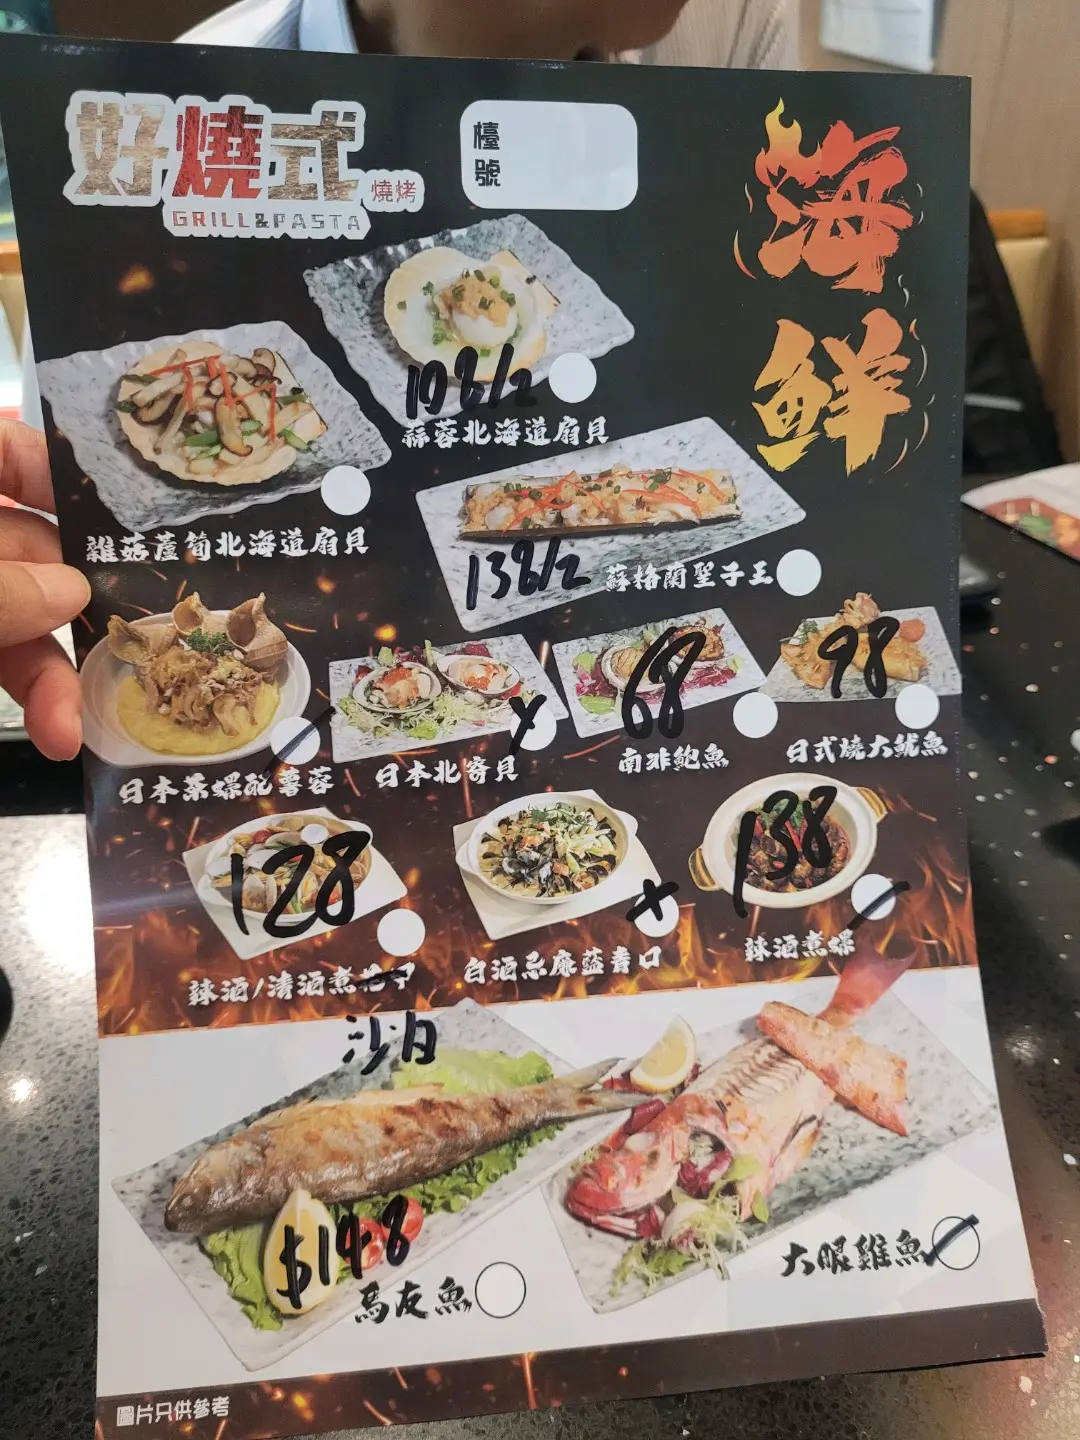 好燒式
燒烤
GRILL&PASTA
檯
號
海
鮮
108/2
蒜蓉北海道扇貝
雜菇蘆筍北海道扇貝
138/2
蘇格蘭聖子王
68
98
日本茶螺配薯蓉
日本北寄貝
南非鮑魚
日式燒大魷魚
128
138
辣酒/清酒煮花甲
白酒忌廉藍青口
辣酒煮螺
沙白
$148
馬友魚
大眼雞魚
圖片只供參考